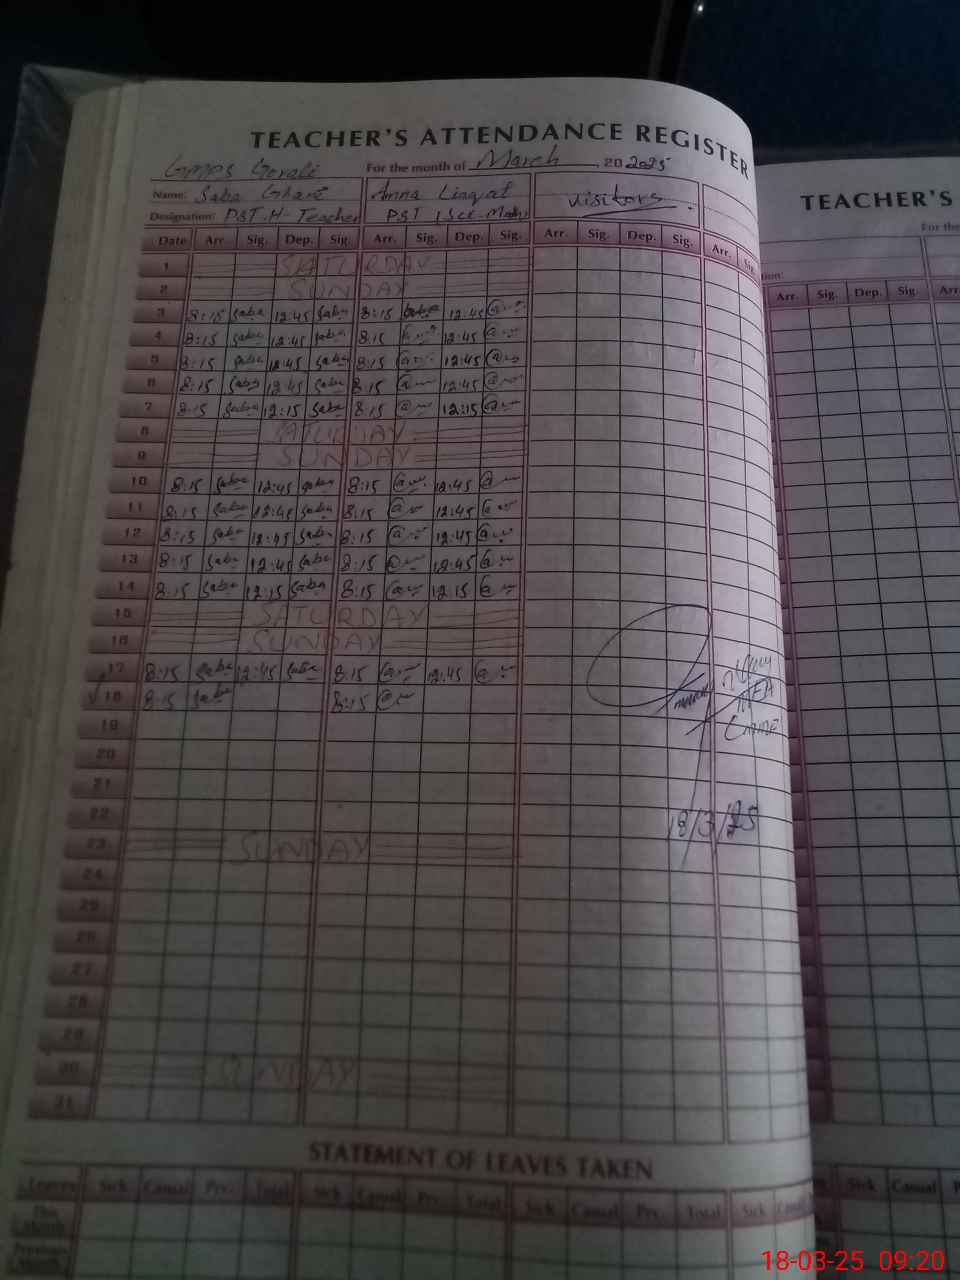 TEACHER'S ATTENDANCE REGISTER
GMPS Gorali For the month of March, 20 2025
Name: Saba Ghani Amna Liaqat visitors
Designation: PST.H-Teacher PST (Sci-Math)
Date Arr. Sig. Dep. Sig. Arr. Sig. Dep. Sig. Arr. Sig. Dep. Sig. Arr. Sig.
1 SATURDAY
2 SUNDAY
3 8:15 Saba 12:45 Saba 8:15 12:45
4 8:15 Saba 12:45 Saba 8:15 12:45
5 8:15 Saba 12:45 Saba 8:15 12:45
6 8:15 Saba 12:45 Saba 8:15 12:45
7 8:15 Saba 12:15 Saba 8:15 12:15
8 SATURDAY
9 SUNDAY
10 8:15 Saba 12:45 Saba 8:15 12:45
11 8:15 Saba 12:45 Saba 8:15 12:45
12 8:15 Saba 12:45 Saba 8:15 12:45
13 8:15 Saba 12:45 Saba 8:15 12:45
14 8:15 Saba 12:15 Saba 8:15 12:15
15 SATURDAY
16 SUNDAY
17 8:15 Saba 12:45 Saba 8:15 12:45
18 8:15 Saba 8:15
MEA
19
20
21
22
18/3/25
23 SUNDAY
24
25
26
27
28
29
30 SUNDAY
31
STATEMENT OF LEAVES TAKEN
Leaves Sick Casual Prv. Total Sick Casual Prv. Total Sick Casual Prv. Total Sick Casual
This Month
Previous Month
TEACHER'S
For the
tion:
Arr. Sig. Dep. Sig. Arr.
Sick Casual P
18-03-25 09:20